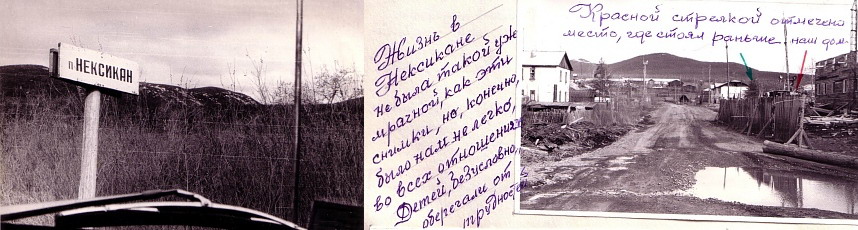 п НЕКСИКАН
Жизнь в
Нексикане
не была такой уж
мрачной, как эти
снимки, но, конечно,
было нам нелегко,
во всех отношениях.
Детей, безусловно,
оберегали от
трудностей
Красной стрелкой отмечено
место, где стоял раньше наш дом.